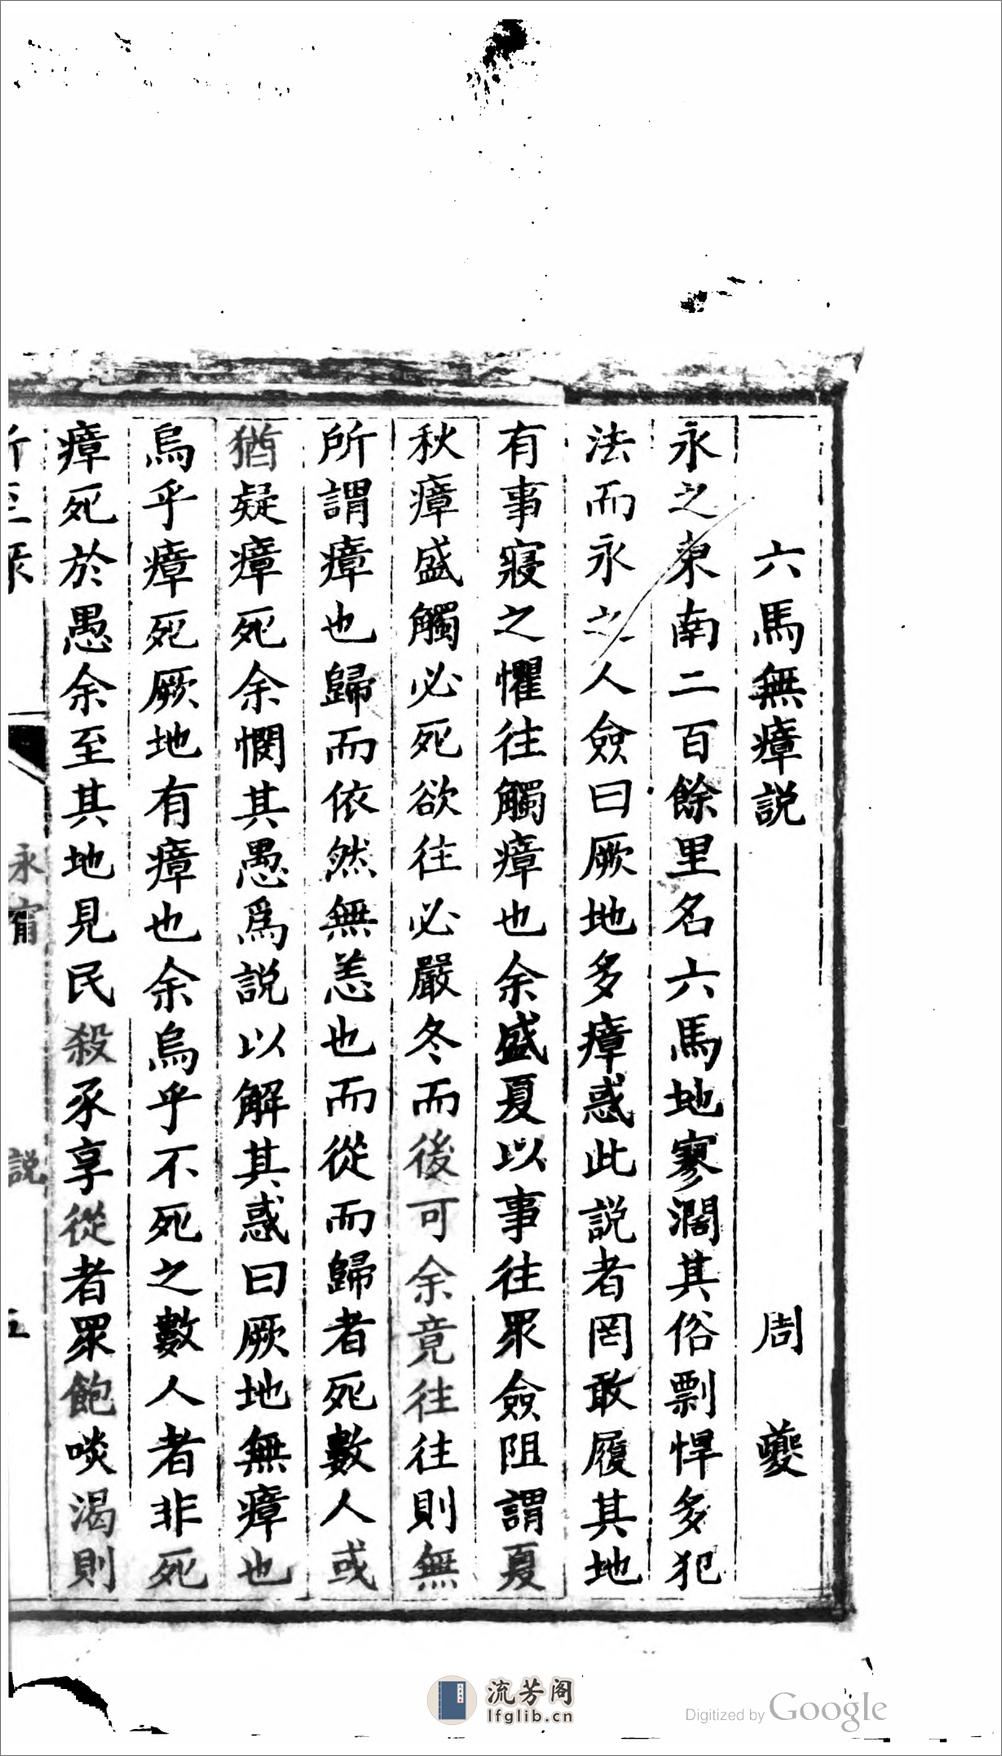 六馬無瘴説 周夔
永之東南二百餘里名六馬地寥濶其俗剽悍多犯
法而永之人僉曰厥地多瘴惑此説者罔敢履其地
有事寢之懼往觸瘴也余盛夏以事往眾僉阻謂夏
秋瘴盛觸必死欲往必嚴冬而後可余竟往往則無
所謂瘴也歸而依然無恙也而從而歸者死數人或
猶疑瘴死余憫其愚爲説以解其惑曰厥地無瘴也
烏乎瘴死厥地有瘴也余烏乎不死之數人者非死
瘴死於愚余至其地見民殺豕享從者眾飽啖渴則
永甯
説
五
流芳阁
lfglib.cn
Digitized by Google